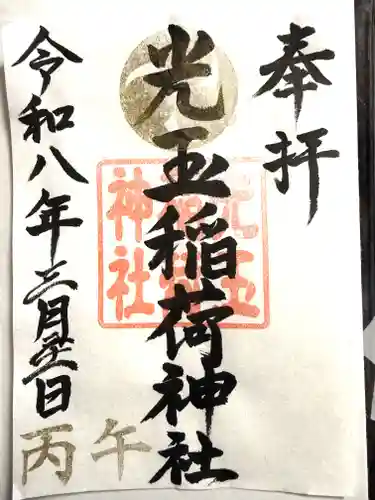 奉拝
光玉稲荷神社
光玉稲荷神社
令和八年三月廿一日
丙午